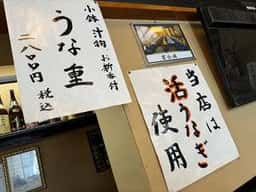 小鉢 汁物 お新香付
うな重
二八〇〇円 税込
当店は
活うなぎ
使用